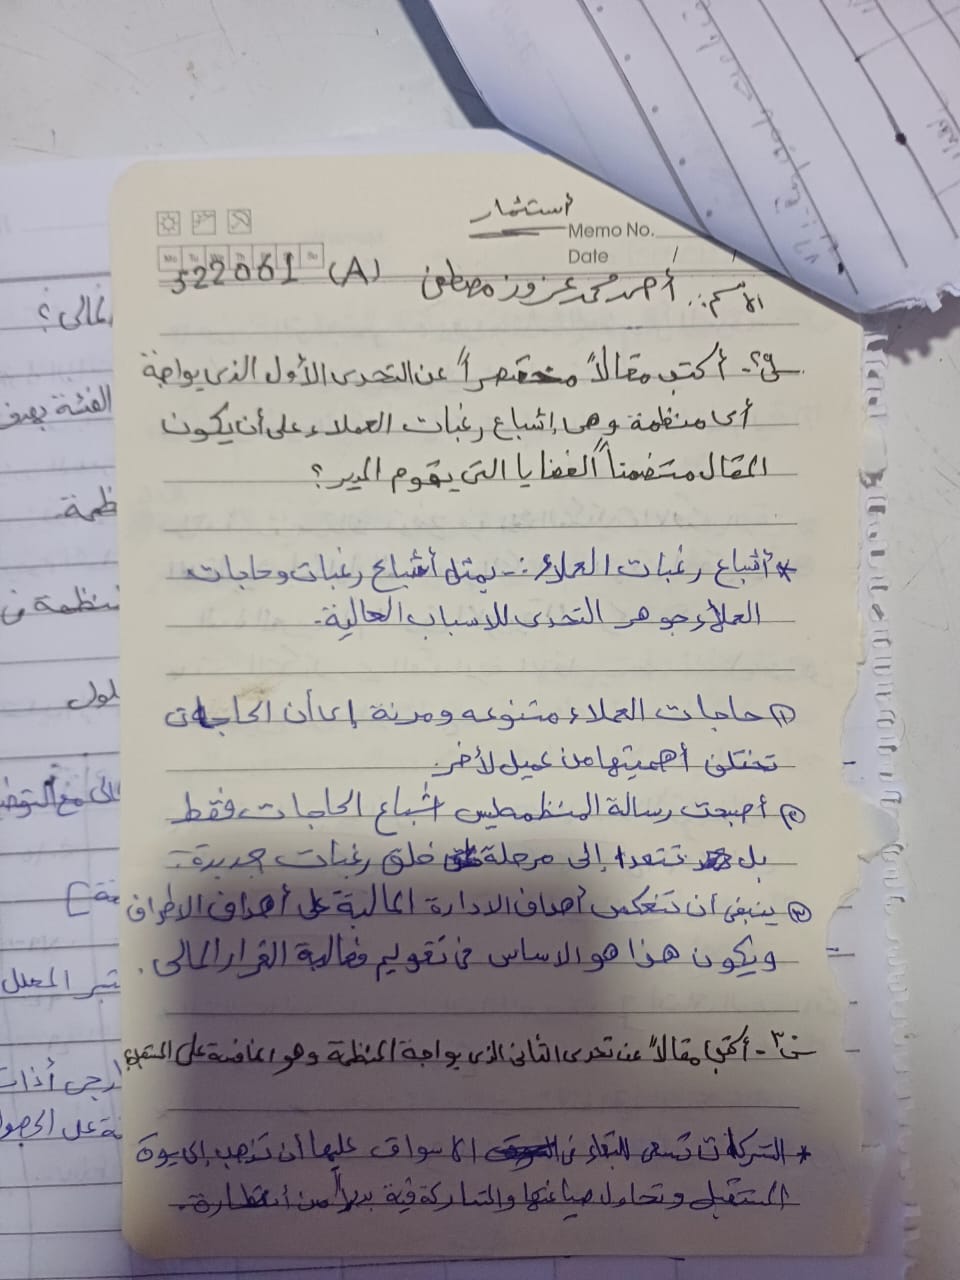 أستثمار
Memo No.
Date / /
522061 (A)
الاسم: أحمد محمد عزوز مصطفى
س٢- أكتب مقالاً مختصراً عن التحدى الأول الذى يواجة
أى منظمة وهى إشباع رغبات العملاء على أن يكون
المقال متضمناً القضايا التى يقوم المدير؟
* أشباع رغبات العملاء :- يمثل أشباع رغبات وحاجات
العملاء جوهر التحدى للاسباب التالية.
١) حاجات العملاء متنوعه ومرنة إلا أن الحاجات
تختلف أهميتها من عميل لأخر.
٢) أصبحت رسالة المنظمة ليس اشباع الحاجات فقط
بل تتعدا إلى مرحلة خلق رغبات جديدة.
٣) ينبغى أن تنعكس أهداف الادارة المالية على أهداف الاطراف
ويكون هذا هو الاساس فى تقويم فعالية القرار المالى.
س٣- أكتب مقالاً عن تحدى الثانى الذى يواجة المنظمة وهو المنافسة على المستقبل؟
* الشركات تسعى للبقاء فى الاسواق عليها أن تذهب إلى بوة
المستقبل وتحاول صياغتها والمشاركة فية بدلاً من أنتظارة.
المالى؟
الفئة بهدف
منظمة فى